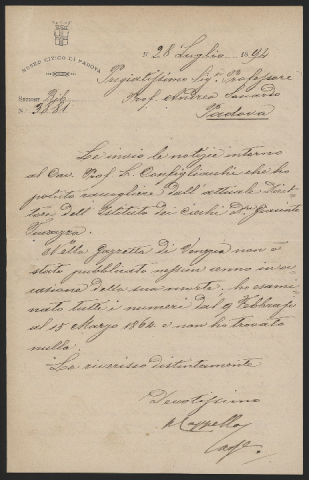 MUSEO CIVICO DI PADOVA
N 28 Luglio 1894
Pregiatissimo Sig. Professore
Prof. Andrea
Padova
N. 3881
Le invio le notizie intorno
al Cav. Prof. L. Configliachi che ho
potuto raccogliere dall'attuale Diret
tore dell'Istituto dei Ciechi Dr.
Nella Gazzetta di Venezia non è
stato pubblicato nessun cenno in oc
casione della sua morte. ho esami
nato tutti i numeri dal 9 Febbrajo
al 15 Marzo 1864 e non ho trovato
nulla.
La riverisco distintamente
Devotissimo
Cappello